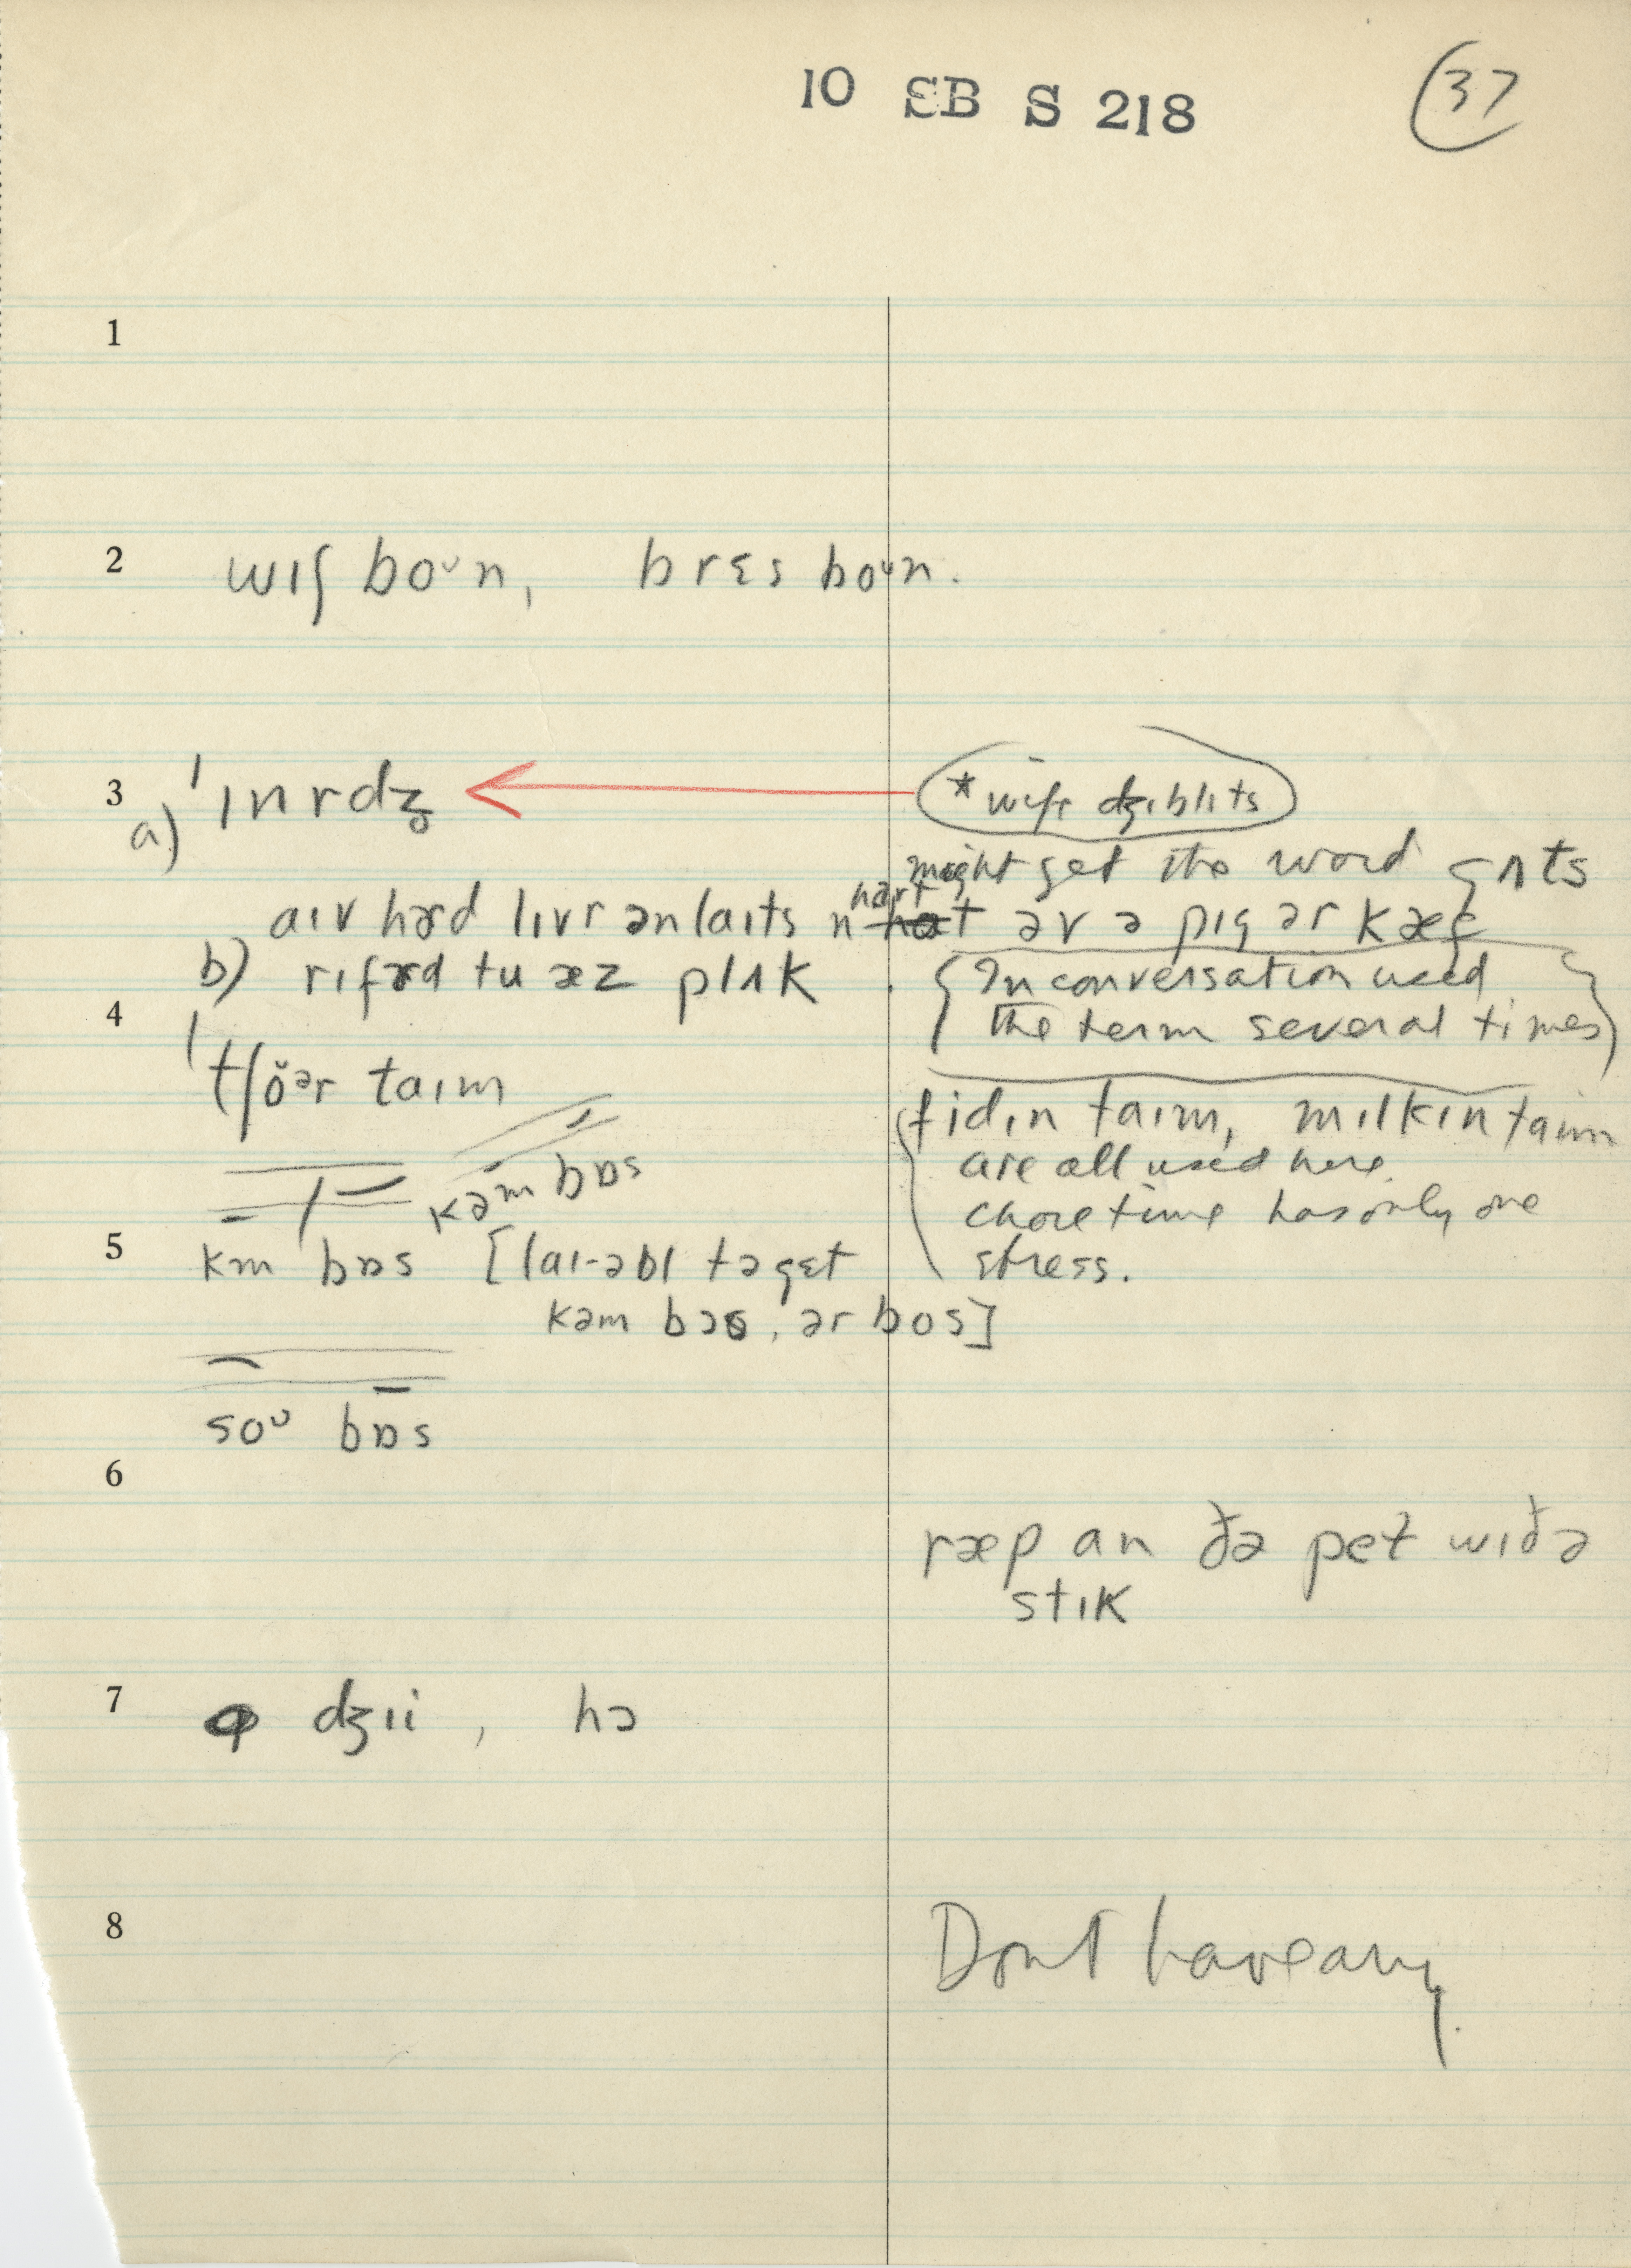 10 SB S 218
37
1
2 wɪʃ boᴜn, brɛs boᴜn.
3 a) ˈɪnrdʒ
* wife dʒɪblɪts
might get the word gʌts
aɪv hərd lɪvr ən laɪts n hart əv ə pɪg ər kæf
b) rɪfərd tu æz plʌk
{In conversation used
the term several times}
4 ˈtʃŏᵊr taɪm
fidɪn taɪm, mɪlkɪn taɪm
are all used here.
chore time has only one
stress.
5 km bɒs kəm bɒs [laɪ-əbl tə gɛt
kəm bɔs, ər bos]
soᴜ bɒs
6
ræp an ðə pet wɪð ə
stɪk
7 dʒɪi, hɔ
8
Dont have any.